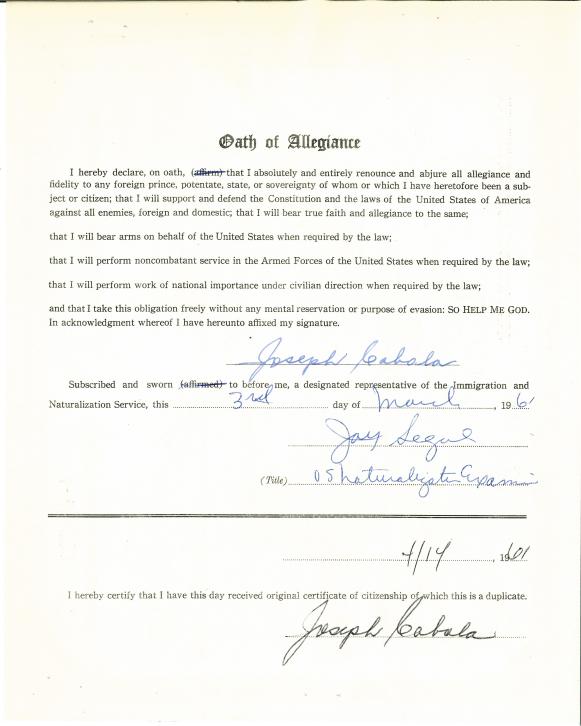 Oath of Allegiance
I hereby declare, on oath, (affirm) that I absolutely and entirely renounce and abjure all allegiance and
fidelity to any foreign prince, potentate, state, or sovereignty of whom or which I have heretofore been a sub-
ject or citizen; that I will support and defend the Constitution and the laws of the United States of America
against all enemies, foreign and domestic; that I will bear true faith and allegiance to the same;
that I will bear arms on behalf of the United States when required by the law;
that I will perform noncombatant service in the Armed Forces of the United States when required by the law;
that I will perform work of national importance under civilian direction when required by the law;
and that I take this obligation freely without any mental reservation or purpose of evasion: SO HELP ME GOD.
In acknowledgment whereof I have hereunto affixed my signature.
Joseph Cabala
Subscribed and sworn (affirmed) to before me, a designated representative of the Immigration and
Naturalization Service, this 3rd day of March, 1961
Jay
(Title) US Naturalization Examin
4/14, 1961
I hereby certify that I have this day received original certificate of citizenship of which this is a duplicate.
Joseph Cabala